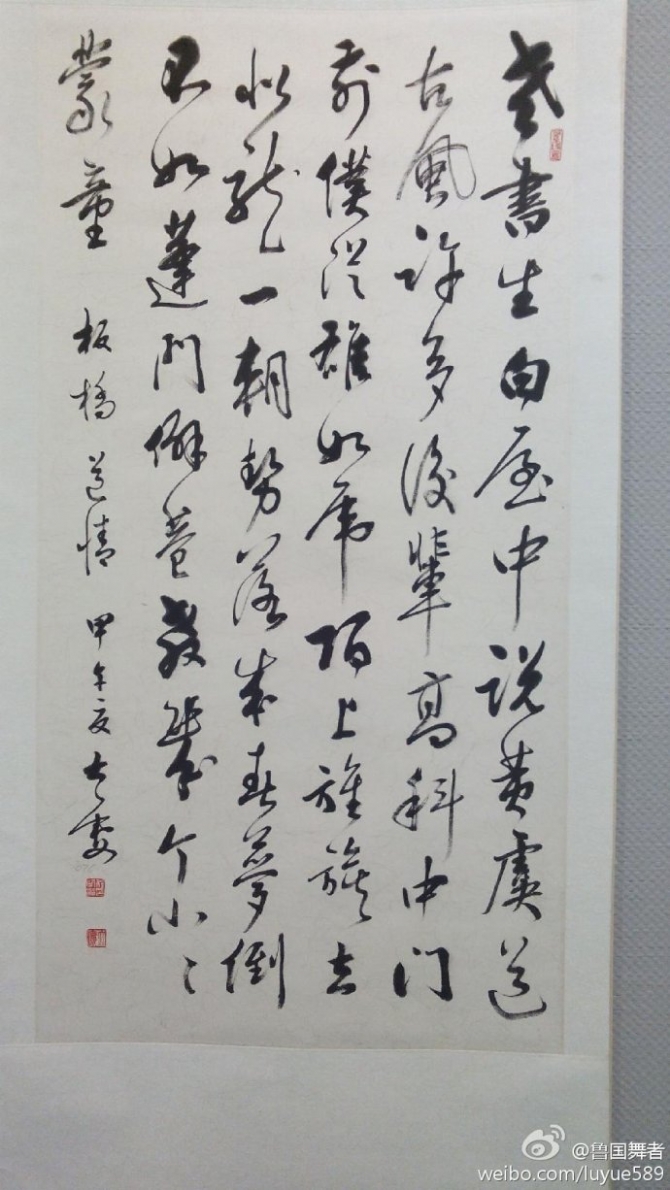 老書生白屋中説黄虞道
古風許多後輩高科中門
前僕從雄如虎陌上旌旗去
似龍一朝勢落成春夢倒
不如蓬門僻巷教幾个小〻
蒙童 板橋道情 甲午夏
@鲁国舞者
weibo.com/luyue589